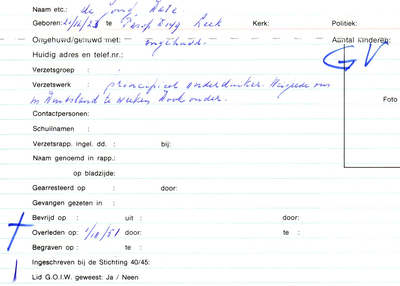 Naam etc.: de Jong, Kate
Geboren: 21/12/23 te Leek Kerk: Politiek:
Ongehuwd/gehuwd met: ongehuwd. Aantal kinderen:
GV
Huidig adres en telef.nr.:
Verzetsgroep :
Verzetswerk : principieel onderduiker. Weigerde om
in Duitsland te werken. Dook onder.
Foto
Contactpersonen:
Schuilnaam :
Verzetsrapp. ingel. dd. : bij:
Naam genoemd in rapp.:
op bladzijde:
Gearresteerd op : door:
Gevangen gezeten in :
Bevrijd op : uit : door:
Overleden op: 1/10/51 door: te :
Begraven op : te :
Ingeschreven bij de Stichting 40/45:
Lid G.O.I.W. geweest: Ja / Neen